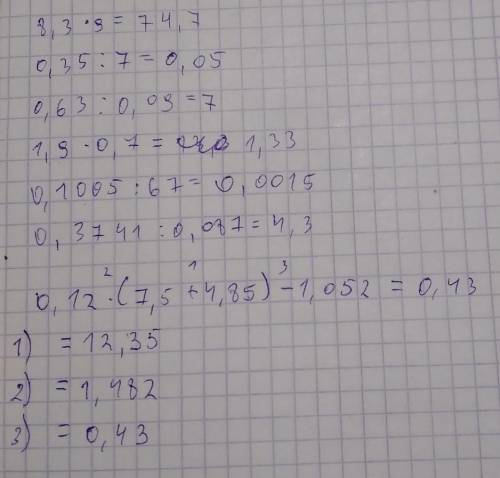 8,3 · 9 = 74,7
0,35 : 7 = 0,05
0,63 : 0,09 = 7
1,9 · 0,7 = 1,33
0,1005 : 67 = 0,0015
0,3741 : 0,087 = 4,3
2 1 3
0,12 · (7,5 + 4,85) - 1,052 = 0,43
1) = 12,35
2) = 1,482
3) = 0,43